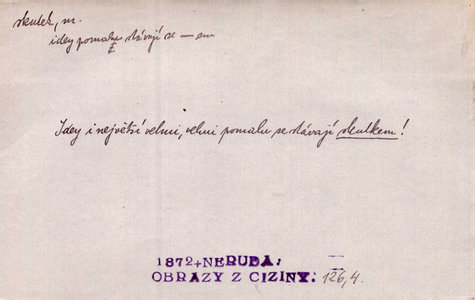 skutek, m.
idey pomalu stávají se — em
Idey i největší velmi, velmi pomalu se stávají skutkem!
1872+NERUDA:
OBRAZY Z CIZINY: 126,4.